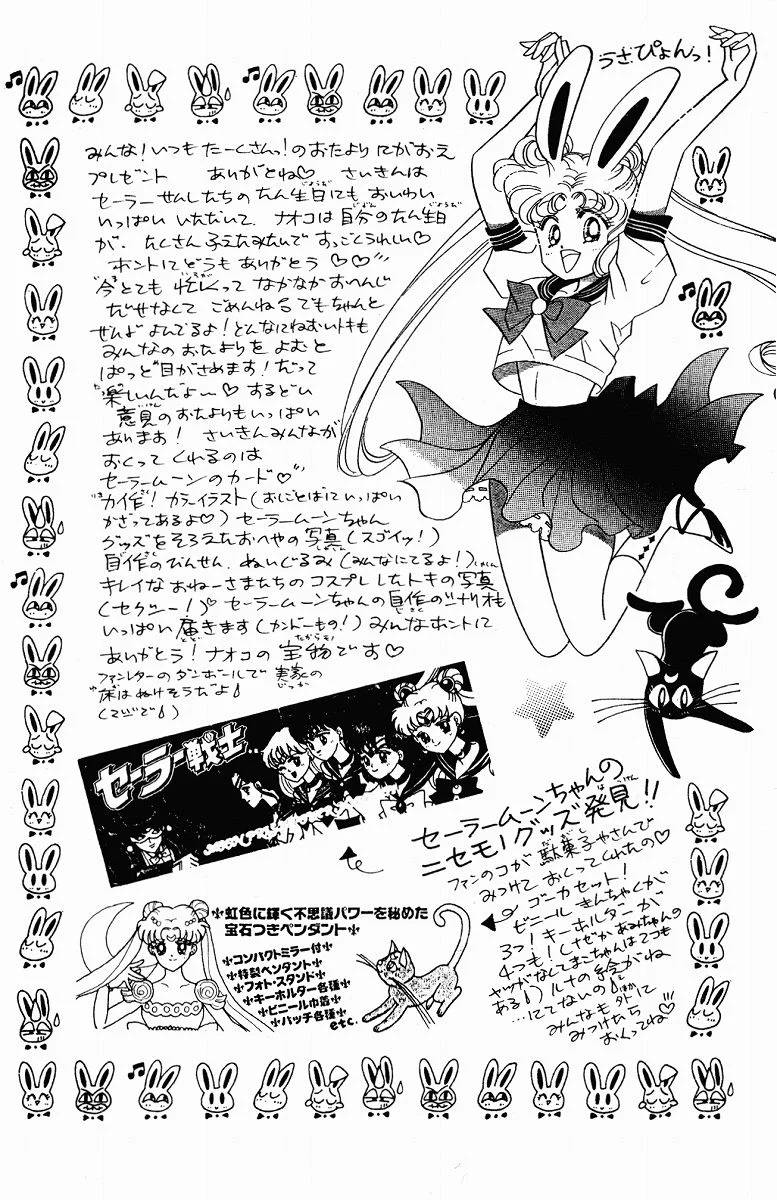 うさぴょんっ！
みんな！いつもたーくさんっ！のおたよりにがおえ
プレゼント ありがとね♡ さいきんは
セーラーせんしたちのたん生日にもおいわい
いっぱいいただいて、ナオコは自分のたん生日
が、たくさんふえたみたいですっごくうれしい♡
ホントにどうもありがとう♡♡
今とても忙しくってなかなかおへんじ
だせなくて ごめんね でもちゃんと
ぜんぶよんでるよ！どんなにねむいトキも
みんなのおたよりをよむと
ぱっと目がさめます！だって
楽しいんだよー♡ するどい
意見のおたよりもいっぱい
あります！ さいきんみんなが
おくってくれるのは
セーラームーンのカード♡
力作！カラーイラスト（おしごとばにいっぱい
かざってあるよ♡）セーラームーンちゃん
グッズをそろえたおへやの写真（スゴイッ！）
自作のびんせん、ぬいぐるみ（みんなにてるよ！）
キレイなおねーさまたちのコスプレしたトキの写真
（セクシー！）♡セーラームーンちゃんの自作のシナリオも
いっぱい届きます（カンドーもの！）みんなホントに
ありがとう！ナオコの宝物です♡
ファンレターのダンボールで実家の
床はぬけそうだよ♪
（マジで♪）
セーラー戦士…
セーラームーンちゃんの
ニセモノグッズ発見！！
ファンのコが駄菓子やさんで
みつけておくってくれたの♡
ゴーカセット！
ビニールきんちゃくが
3つ！キーホルダーが
4つも！（なぜかあみちゃんの
ヤツがなくてまこちゃんは2つも
ある♪）ルナの絵がね
…にてないの♪ほか
みんなも
みつけたら
おくってね
虹色に輝く不思議パワーを秘めた
宝石つきペンダント
コンパクトミラー付
特製ペンタント
フォト・スタンド
キーホルター各種
ビニール巾着
バッチ各種
etc.